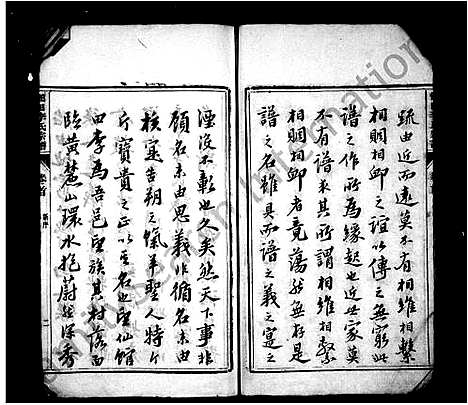 疏由近而遠莫不有相維相繫
相賙相卹之誼以傳之無窮此
譜之作所為緣起也近世家莫
不有譜求其所謂相維相繫
相賙相卹者竟蕩然無存是
譜之名雖具而譜之義之寔之
湮沒不彰也久矣然天下事非
顧名末由思義非循名末由
核寔告朔之餼羊聖人特斤
斤寶貴之正以至名也聖仙館
田李為吾邑望族其村落面
臨黃麓山環水抱蔚然深秀
李氏宗譜
卷首
新序